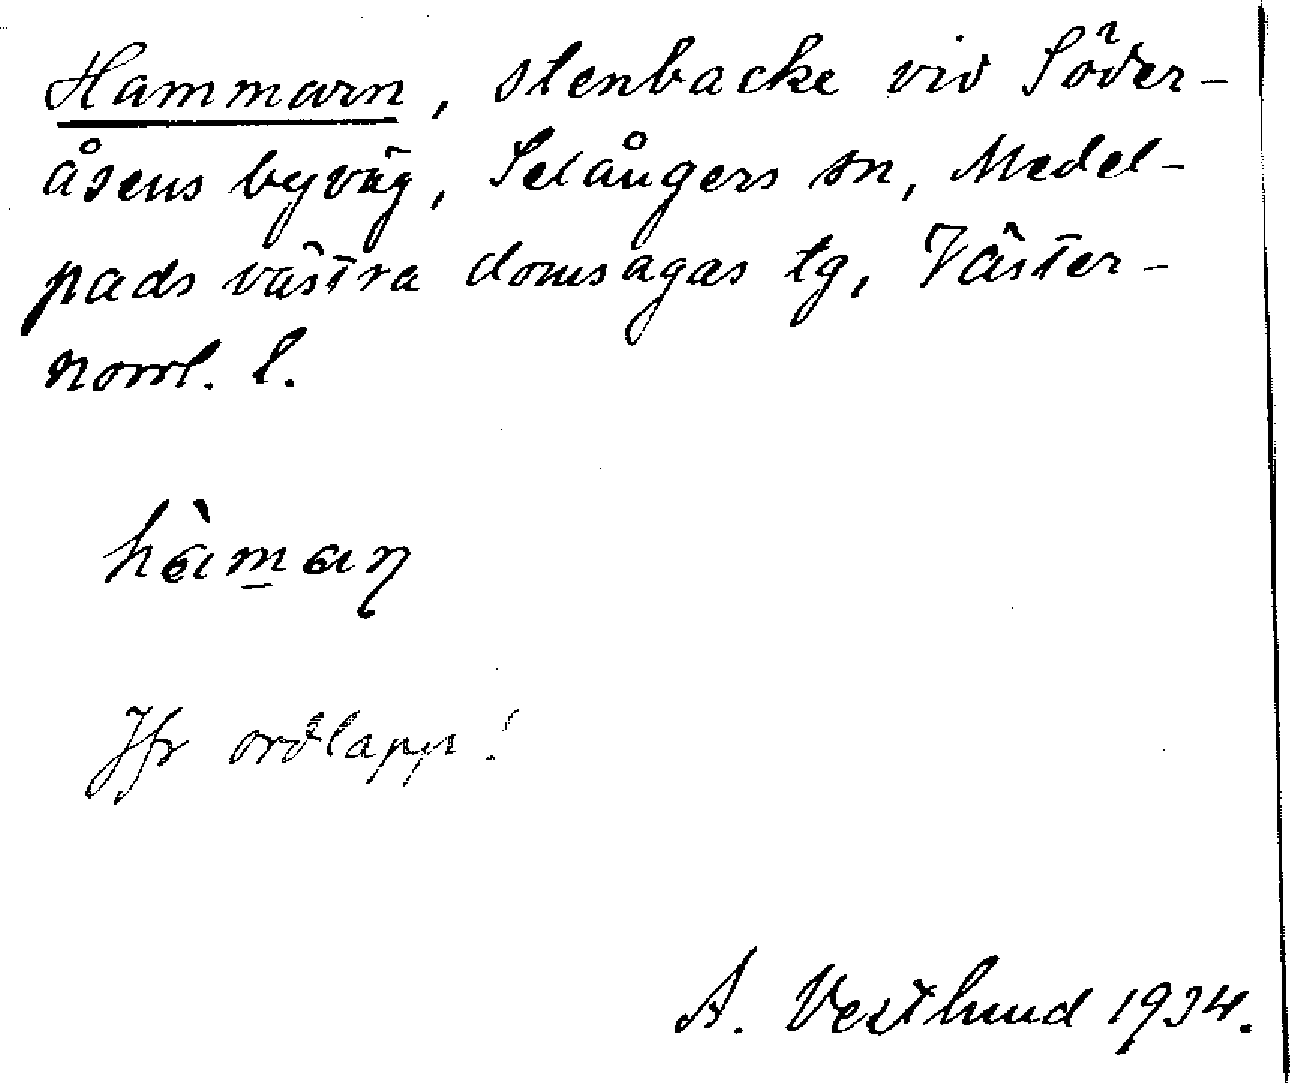 Hammarn, stenbacke vid Söder-
åsens byväg, Selångers sn, Medel-
pads västra domsagas tg, Väster-
norrl. l.
hàman
Jfr ordlapp!
A. Vestlund 1934.